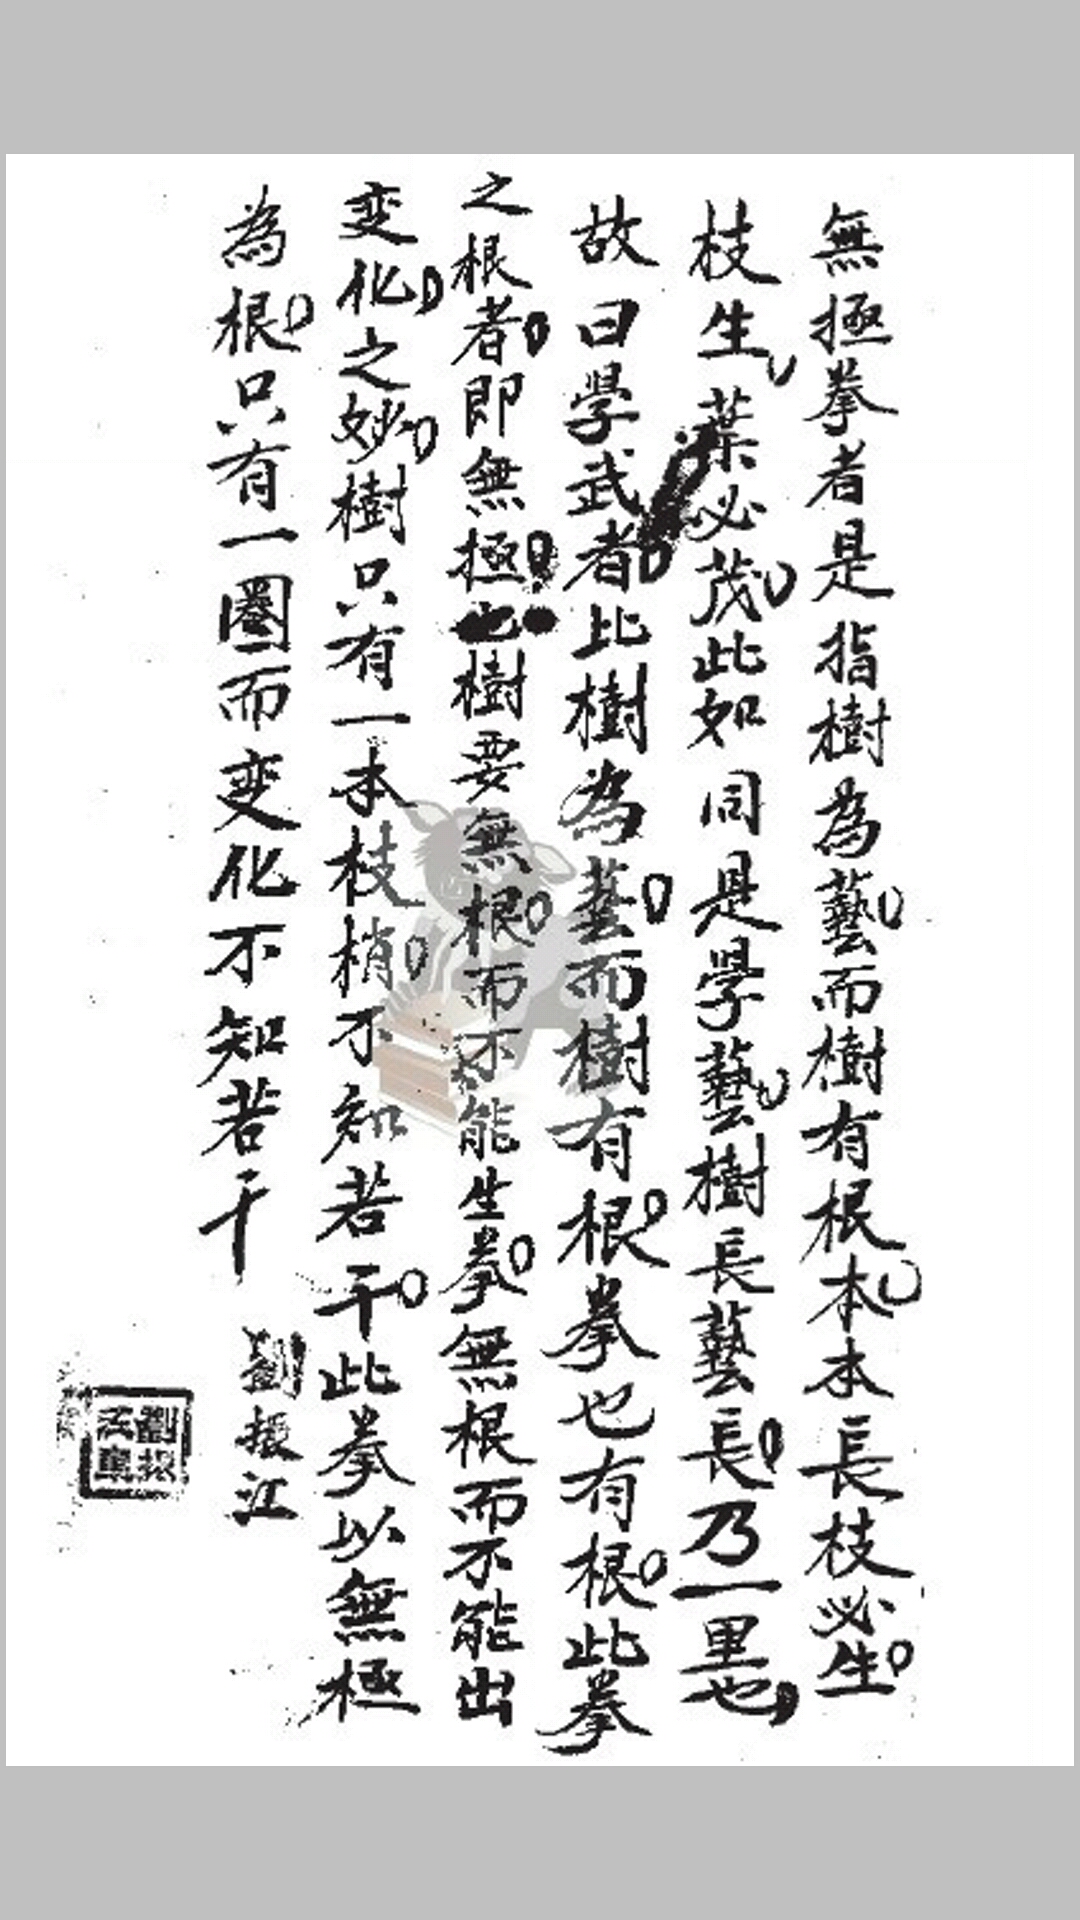 無極拳者是指樹為藝而樹有根本本長枝必生
枝生葉必茂此如同是學藝樹長藝長乃一里也
故曰學武者比樹為藝而樹有根拳也有根此拳
之根者即無極也樹要無根而不能生拳無根而不能出
变化之妙樹只有一本枝梢不知若干此拳以無極
為根只有一圈而变化不知若干
劉振江